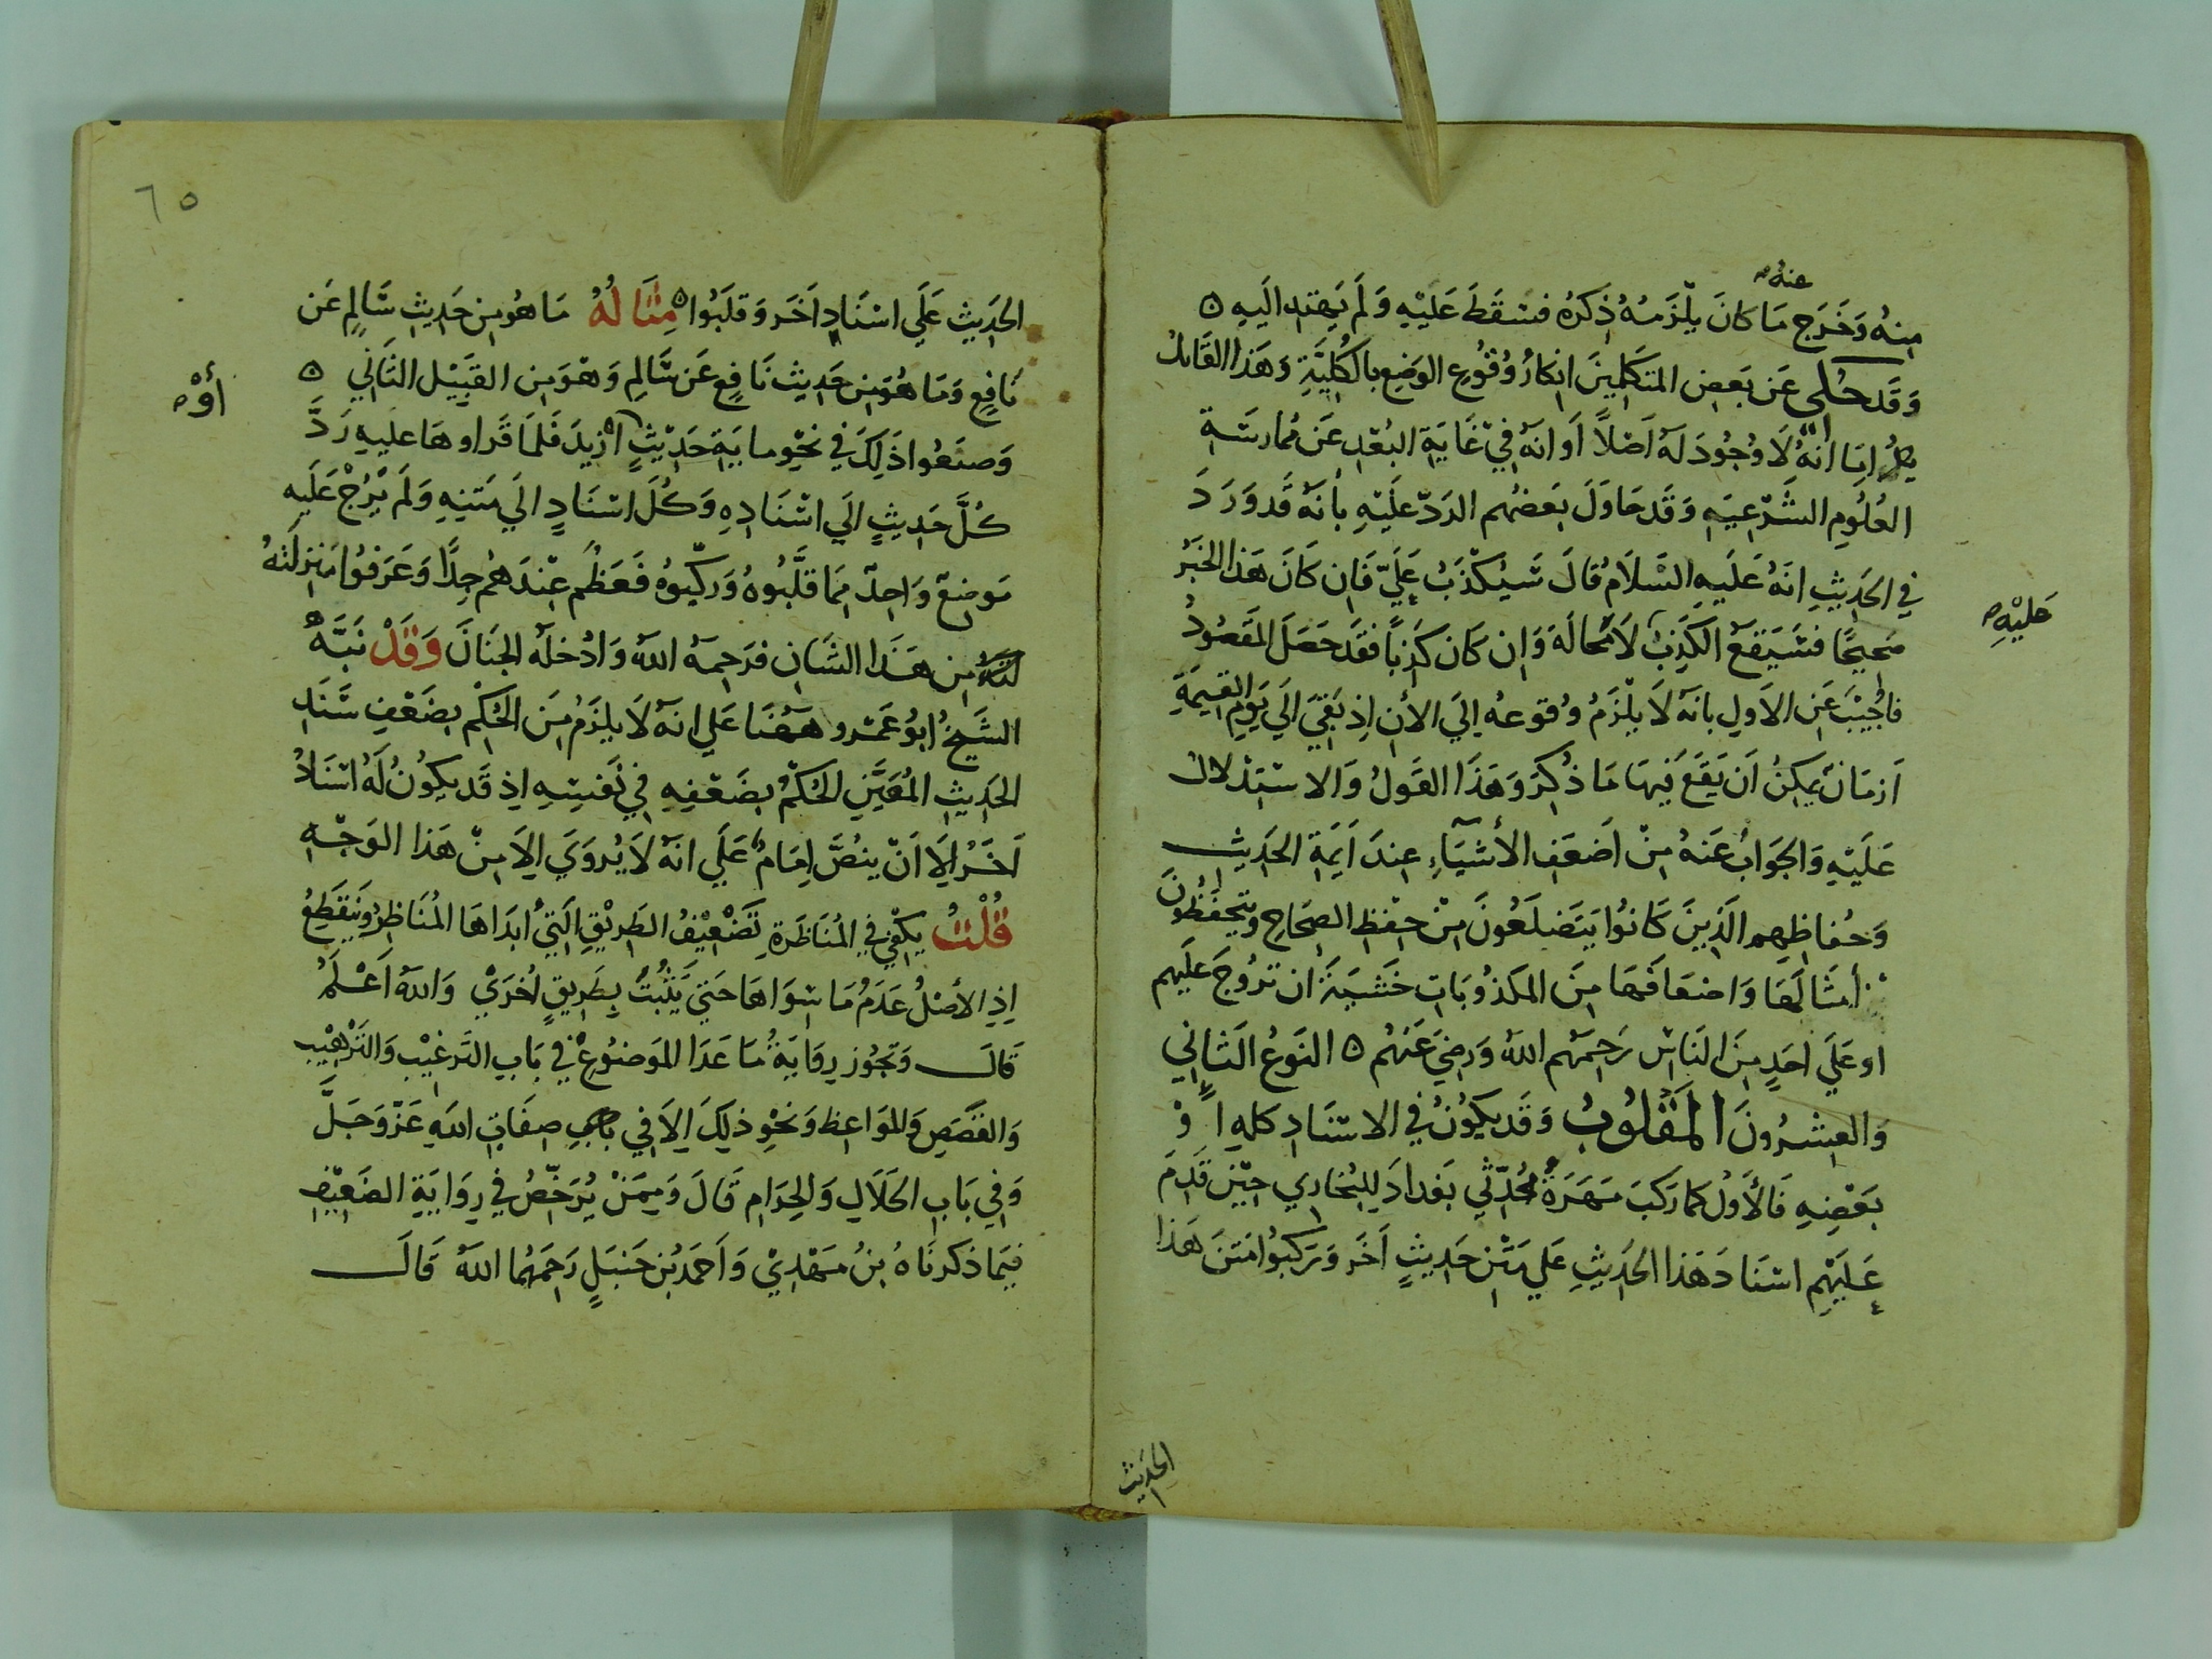 عنه صح
منهُ وَخَرَج مَا كانَ يلْزَمُهُ ذِكرُهُ فسَقَطَ عَلَيْهِ وَلَم يَهتدِ الَيهِ ه
وَقَد حُكى عَن بَعضِ المتَكلمِينَ انكارُ وُقوُعِ الوَضعِ بالكُليَّةِ وَهَذا القَائلُ
امَا انهُ لَا وُجُودَ لهَ اَصْلاً اَو انهُ فِي غَايَةِ البُعْدِ عَن مُمارسَةِ
العُلُومِ الشَرْعيَهِ وَقَد حَاوَلَ بَعضُهم الردّ عليْهِ بانهُ قَد وَرَدَ
في الحَدِيثِ انَهُ عَلَيهِ السَلامُ قالَ سَيُكْذَبُ عَليّ فَان كَانَ هَذا الخَبرُ
صَحِيحًا فسَيَقعُ الكَذِبُ لَامحالَة وَان كَان كَذِباً فقَد حَصَلَ المَقصُودُ
عَليْهِ صح
فاُجيْبَ عَنِ الاَولِ بانهُ لَا يلْزَمُ وُقوعهُ الِيَ الأن اِذ بَقيَ الَي يَومِ القيمَةِ
اَزمَانٌ يمكِنُ اَن يَقَعَ فيهَا مَا ذُكِرَ وَهَذَا القَولُ وَالاستِدْلالُ
عَلَيْهِ وَالجوَابُ عَنهُ مِنْ اَضعَفِ الأشيَآءِ عِندَ اَيمَةِ الحَدِيثِ
وَحُفاظِهِم الَذِينَ كَانوُا يَتَضَلعُونَ مِنْ حِفظِ الصِحَاحِ ويَتحَفَظُونَ
أمثَالَهَا وَاضعَافَهَا مِنَ المَكذُوبَاتِ خَشيَةَ اَن تَرُوجَ عَلَيهم
او عَلَي اَحَدٍ مِنَ النَاسِ رَحِمَهُم اللهُ وَرَضيَ عَنهُم ه النَوعُ الثَانِي
وَالعِشرُونَ المَقْلُوبُ وَقَد يكوُنُ في الاسْنَادِ كلهِ اَوْ
بَعْضِهِ فَالأوَلُ كمَا رَكبَ مَهَرَةُ مُحَدّثي بَغدادَ لِلبُخَارِي حِيْنَ قَدِمَ
عَلَيْهِم اسْنَادَ هَذا الحَدِيثِ عَلي مَتْنِ حَدِيثٍ اَخَر وَركبُوا مَتنَ هَذا
الحَدِيث
٦٥
الحَدِيثِ عَلَي اسْنَادٍ اَخَر وَقَلَبُوا ه مِثَالُهُ مَا هُو مِن حَدِيثِ سَالِمٍ عَن
نَافعٍ وَمَا هُوَ مِن حَدِيث نَافعٍ عَن سَالمِ وَهوَ مِن القَبِيْل الثَانِي ه
وَصنَعُوا ذَلِكَ في نحْوِ ماية حَدِيْثٍ ازيدَ فَلمَا قَراوهَا عليهِ رَدَّ
أوْ صح
كُلَّ حَدِيثٍ الَي اسْنَادِهِ وَكُلَ اسْنَادٍ الَي مَتنِهِ وَلَم يَرُجْ عَلَيهِ
مَوضِعٌ وَاحِدٌ مِمَا قَلَّبُوهُ وَركّبوُهُ فَعَظُم عِنْدَهُم جِدًا وَعَرَفوُا مَنزلتهُ
مِن هَذَا الشَان فرَحِمَهُ اللهُ وَادْخلهُ الجنَانَ وَقَدْ نَبَّهَ
الشَيخُ ابوُ عَمْرو هَهُنَا عَلي انهُ لَا يلزَمُ مِنَ الحُكْمِ بضَعْفِ سَنَدِ
الحَدِيثِ المُعَيَّنِ الحُكمُ بضَعْفِهِ في نَفسِهِ اِذ قَد يكوُنُ لهُ اسْنَادٌ
اَخَرُ الاَ اَنْ ينُصَّ امَامٌ عَلَي انهُ لَا يُروَي الاَ مِنْ هَذا الوَجْهِ
قُلْتُ يكفِي في المُنَاظَرَةِ تَضعْيفُ الطَريْقِ التي ابدَاهَا المُنَاظِرُ وَينقَطِعُ
اِذِ الأصْلُ عَدَمُ مَا سِوَاهَا حَتي يَثبُتَ بِطَرِيقٍ اُخرَي وَاللهُ اَعْلَمُ
قَالَ وَتَجُوز رِوَايَةُ مَا عَدَا المَوضُوعِ في بَابِ التَرغيْبِ وَالتَرْهِيْبِ
وَالقَصَصِ وَالموَاعِظ وَنَحْوِ ذلِكَ الاَ في بَابِ صِفَاتِ اللهِ عَزّ وَجَلَّ
وَفي بَابِ الحَلَالِ وَالحرَامِ قَالَ وَمِمَنْ يُرَخّصُ في رِوَايَةِ الضَعِيْفِ
فيمَا ذكرنَاهُ بنُ مَهْدِيْ وَاَحمَدُ بنِ حَنبَلٍ رَحمَهُما اللهُ قَالَ